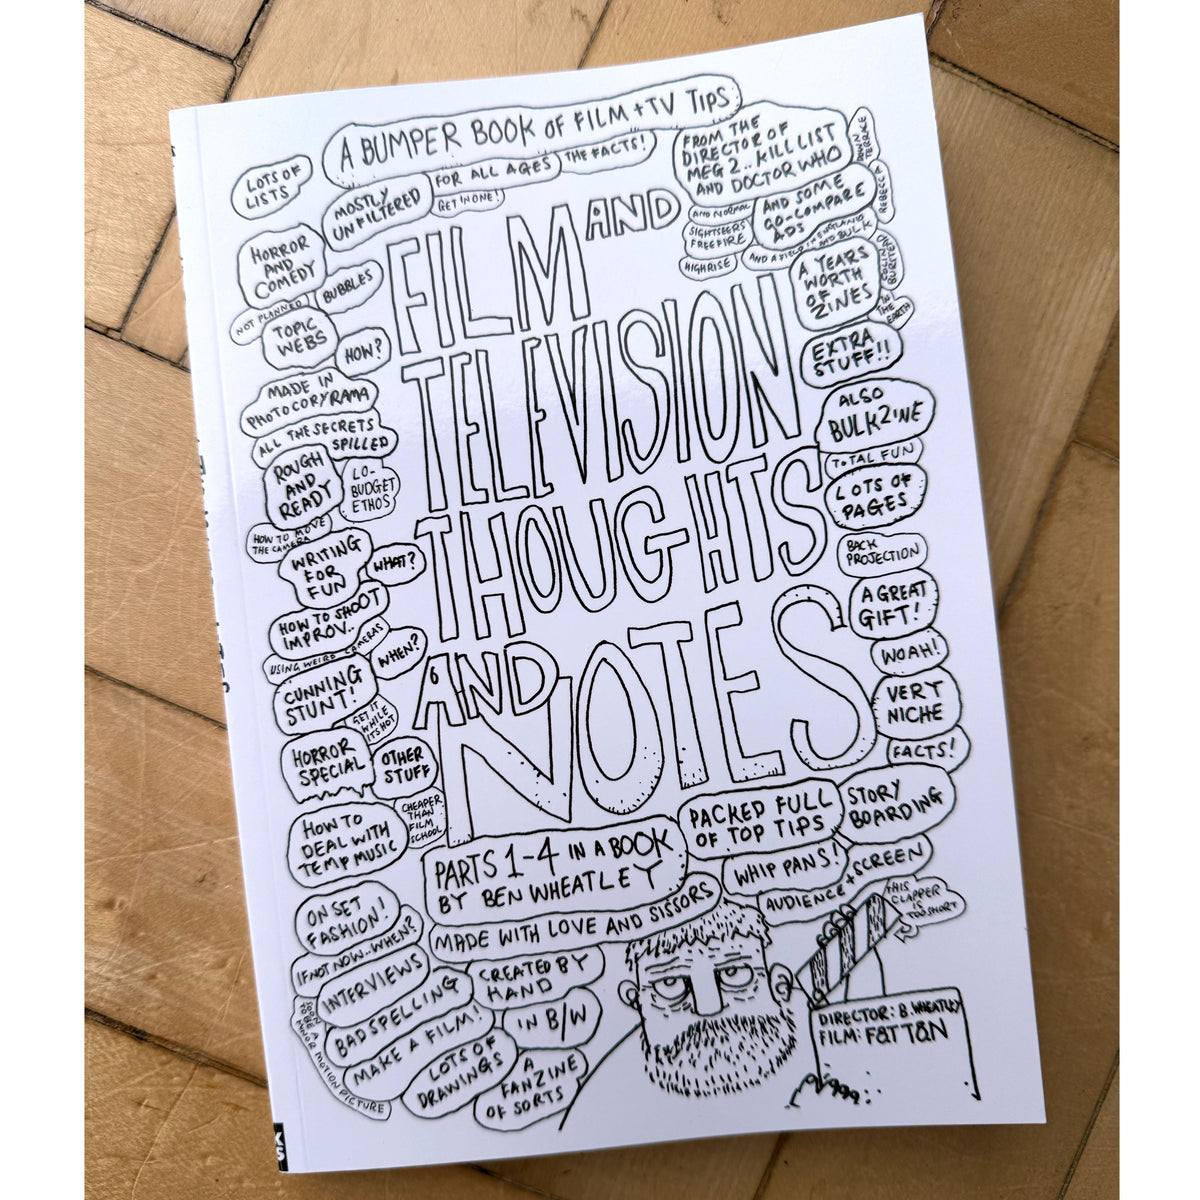 A BUMPER BOOK OF FILM + TV TIPS
LOTS OF
LISTS
MOSTLY
UNFILTERED
FOR ALL AGES
GET IN ONE!
THE FACTS!
FROM THE
DIRECTOR OF
MEG 2.. KILL LIST
AND DOCTOR WHO
DOWN
TERRACE
REBECCA
AND NORMAL
SIGHTSEERS
FREEFIRE
HIGHRISE
AND SOME
GO-COMPARE
ADS
AND A FIELD IN ENGLAND
AND BULK
COLIN
BURSTEAD
IN
THE
EARTH
FILM AND
TELEVISION
THOUGHTS
AND NOTES
HORROR
AND
COMEDY
NOT PLANNED
BUBBLES
TOPIC
WEBS
HOW?
MADE IN
PHOTOCOPYRAMA
ALL THE SECRETS
SPILLED
ROUGH
AND
READY
LO-
BUDGET
ETHOS
HOW TO MOVE
THE CAMERA
WRITING
FOR
FUN
WHAT?
HOW TO SHOOT
IMPROV..
USING WEIRD CAMERAS
WHEN?
CUNNING
STUNT!
GET IT
WHILE
ITS HOT
HORROR
SPECIAL
OTHER
STUFF
CHEAPER
THAN
FILM
SCHOOL
HOW TO
DEAL WITH
TEMP MUSIC
ON SET
FASHION!
IF NOT NOW...WHEN?
INTERVIEWS
BAD SPELLING
MAKE A FILM!
SOON
TO BE A
MINOR MOTION PICTURE
LOTS OF
DRAWINGS
A YEARS
WORTH
OF
ZINES
EXTRA
STUFF!!
ALSO
BULKZINE
TOTAL FUN
LOTS OF
PAGES
BACK
PROJECTION
A GREAT
GIFT!
WOAH!
VERY
NICHE
FACTS!
STORY
BOARDING
PACKED FULL
OF TOP TIPS
PARTS 1-4 IN A BOOK
BY BEN WHEATLEY
WHIP PANS!
AUDIENCE + SCREEN
MADE WITH LOVE AND SISSORS
CREATED BY
HAND
IN B/W
A
FANZINE
OF SORTS
THIS
CLAPPER
IS
TOO SHORT
DIRECTOR: B. WHEATLEY
FILM: FATTAN
KS